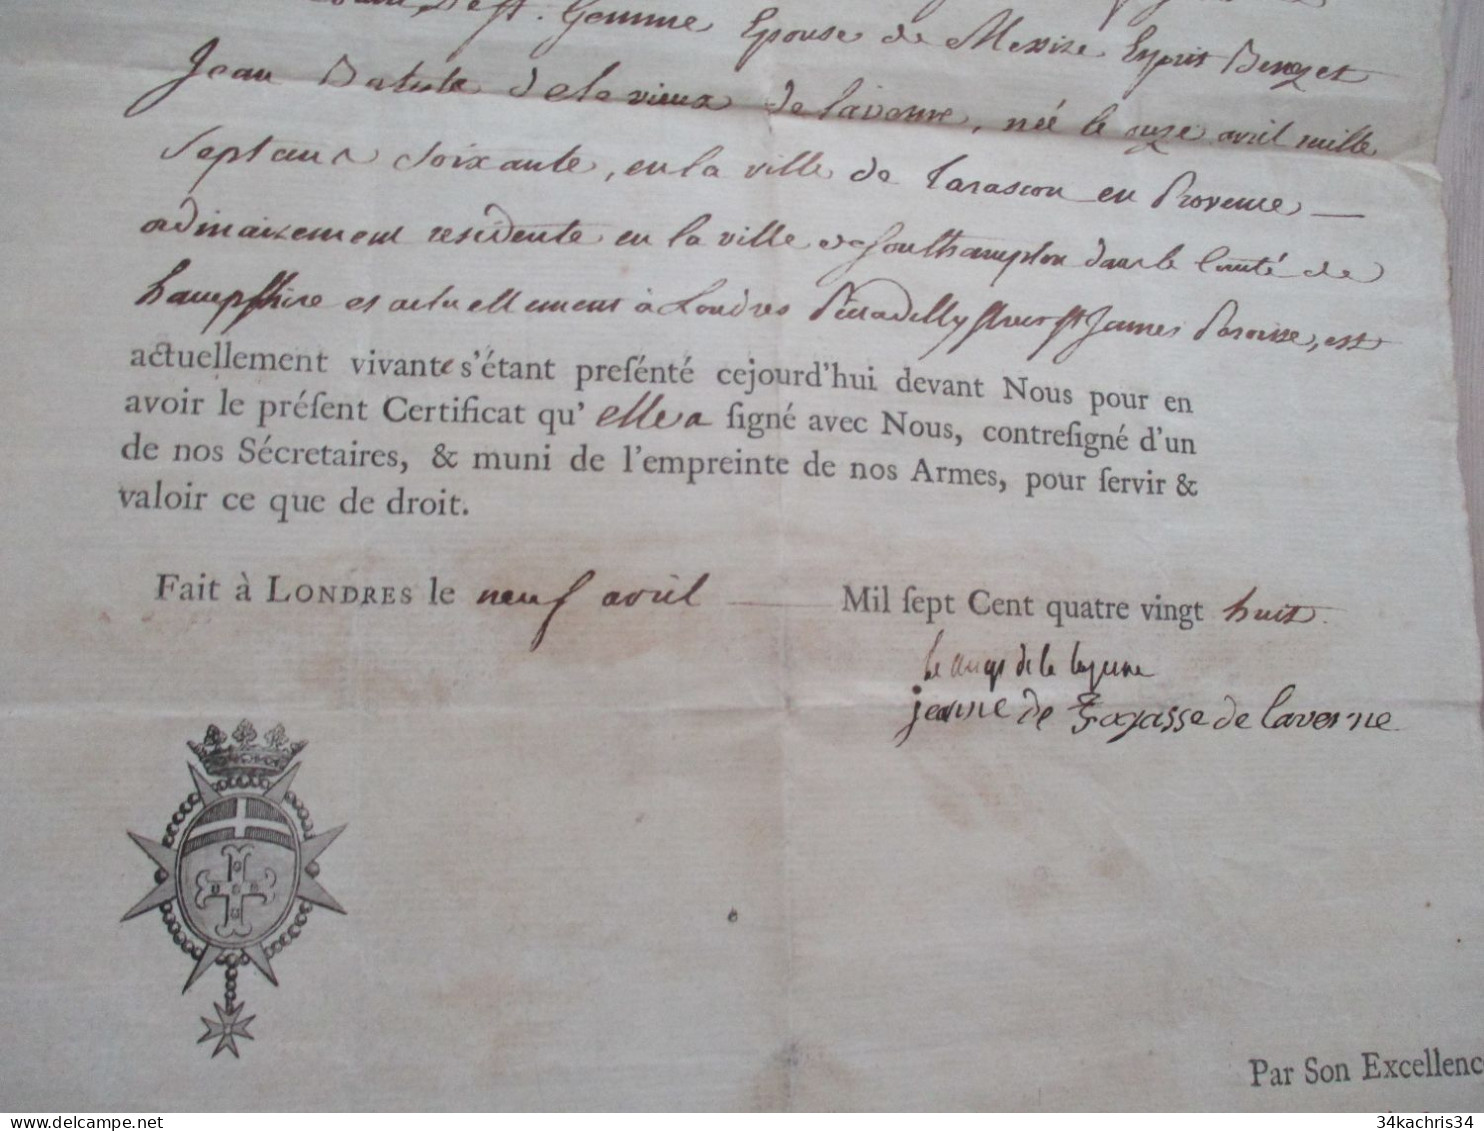 de St. Gemme Epouse de Messire Esprit Benezet
Jean Batiste de la vieux de laverne, née le onze avril mille
Septcent Soixante, en la ville de Tarascon en Provence —
ordinairement residente en la ville de Southampton dans le Comté de
hampshire et actuellement à Londres Piccadilly St James Paroisse, est
actuellement vivante s'étant preſénté cejourd'hui devant Nous pour en
avoir le préſent Certificat qu' elle a ſigné avec Nous, contreſigné d'un
de nos Sécretaires, & muni de l'empreinte de nos Armes, pour ſervir &
valoir ce que de droit.
Fait à LONDRES le neuf avril — Mil ſept Cent quatre vingt huit.
le de la luzerne
jeanne de Sagasse de laverne
Par Son Excellenc
34kachris34
delcampe.net